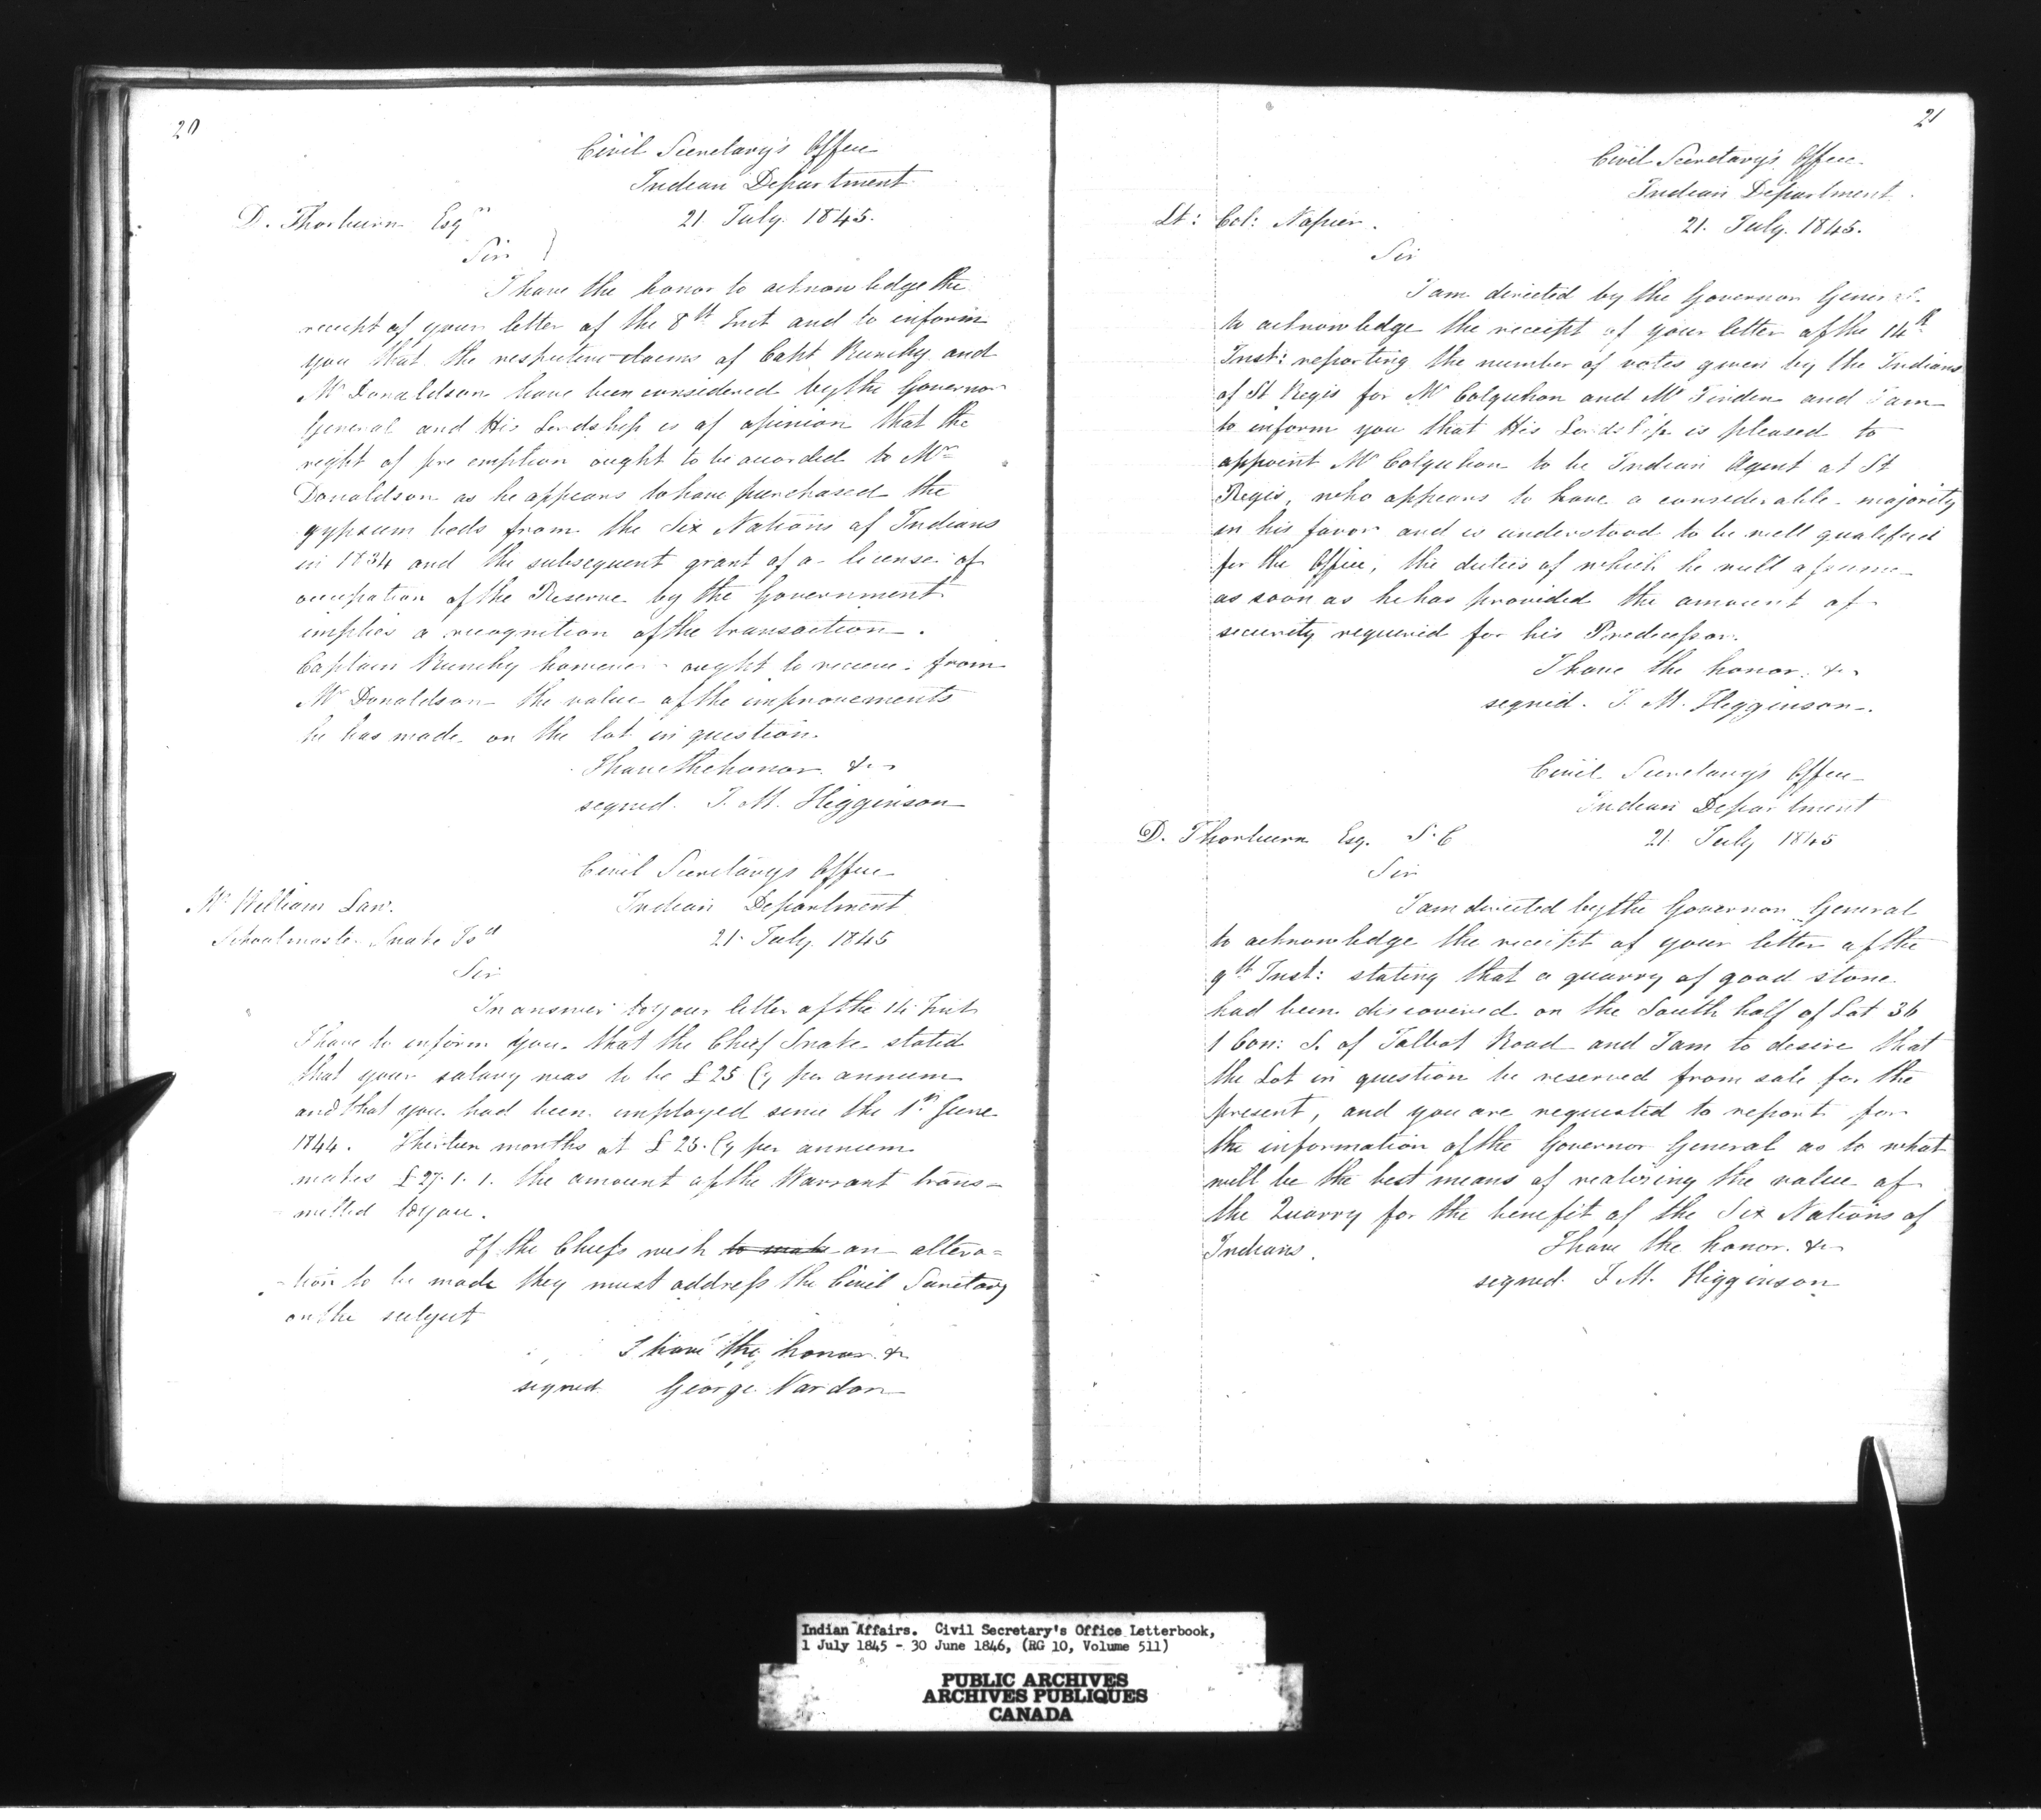 20
Civil Secretary's Office
Indian Department
D. Thorburn Esqre 21. July 1845.
Sir
I have the honor to acknowledge the
receipt of your letter of the 8th Inst and to inform
you that the respective claims of Capt Runchy and
Mr Donaldson have been considered by the Governor
General and His Lordship is of opinion that the
right of pre emption ought to be accorded to Mr
Donaldson as he appears to have purchased the
gypsum beds from the Six Nations of Indians
in 1834 and the subsequent grant of a license of
occupation of the Reserve by the Government
implies a recognition of the transaction.
Captain Runchy however ought to receive from
Mr Donaldson the value of the improvements
he has made on the lot in question.
I have the honor &c
signed. J. M. Higginson
Civil Secretary's Office
Mr William Law. Indian Department
Schoolmaster Snake Isd 21. July 1845
Sir
In answer to your letter of the 14 Inst
I have to inform you that the Chief Snake stated
that your salary was to be £25 Cy per annum
and that you had been employed since the 1st June
1844. Thirteen months at £25. Cy per annum
makes £27.1.1. the amount of the Warrant trans=
mitted to you.
If the Chiefs wish to make an altera=
=tion to be made they must address the Civil Secretary
on the subject
I have the honor &
signed George Vardon
21
Civil Secretary's Office
Indian Department
Lt: Col: Napier. 21. July. 1845.
Sir
I am directed by the Governor General
to acknowledge the receipt of your letter of the 14th
Inst: reporting the number of votes given by the Indians
of St Regis for Mr Colquhon and Mr and I am
to inform you that His Lordship is pleased to
appoint Mr Colquhon to be Indian Agent at St
Regis, who appears to have a considerable majority
in his favor and is understood to be well qualified
for the Office, the duties of which he will assume
as soon as he has provided the amount of
security required for his Predecessor.
I have the honor. &c
signed. J. M. Higginson.
Civil Secretary's Office
Indian Department
D. Thorburn Esq. S. C 21. July 1845
Sir
I am directed by the Governor General
to acknowledge the receipt of your letter of the
9th Inst: stating that a quarry of good stone
had been discovered on the South half of Lot 36
1 Con: S. of Talbot Road and I am to desire that
the Lot in question be reserved from sale for the
present, and you are requested to report for
the information of the Governor General as to what
will be the best means of realizing the value of
the Quarry for the benefit of the Six Nations of
Indians. I have the honor. &c
signed J. M. Higginson
Indian Affairs. Civil Secretary's Office Letterbook,
1 July 1845 - 30 June 1846, (RG 10, Volume 511)
PUBLIC ARCHIVES
ARCHIVES PUBLIQUES
CANADA